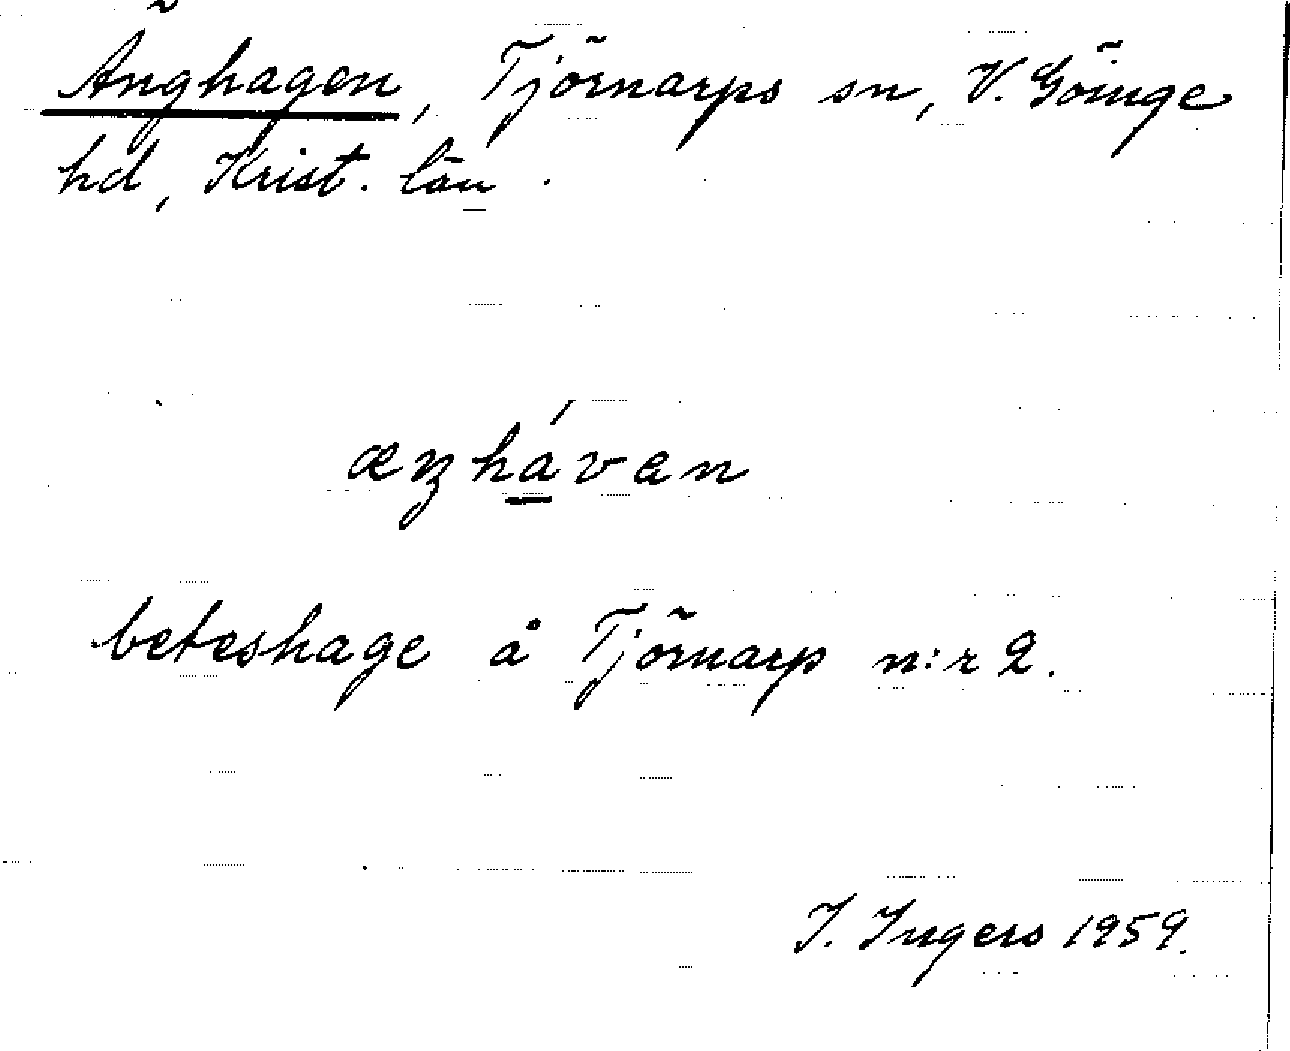 Änghagen, Tjörnarps sn, V. Göinge
hd, Krist. län.
æŋhá̱van
beteshage å Tjörnarp n:r 2.
I. Ingers 1959.